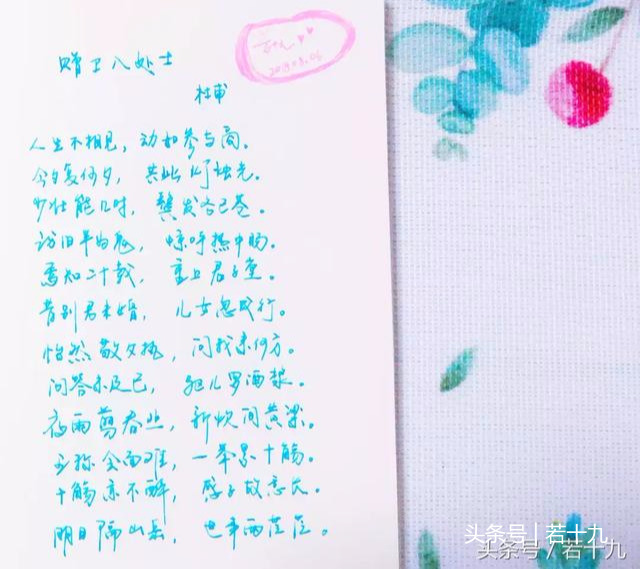 赠卫八处士
杜甫
人生不相见，动如参与商。
今夕复何夕，共此灯烛光。
少壮能几时，鬓发各已苍。
访旧半为鬼，惊呼热中肠。
焉知二十载，重上君子堂。
昔别君未婚，儿女忽成行。
怡然敬父执，问我来何方。
问答未及已，驱儿罗酒浆。
夜雨剪春韭，新炊间黄粱。
主称会面难，一举累十觞。
十觞亦不醉，感子故意长。
明日隔山岳，世事两茫茫。
头条号 | 若十九
头条号 / 若十九